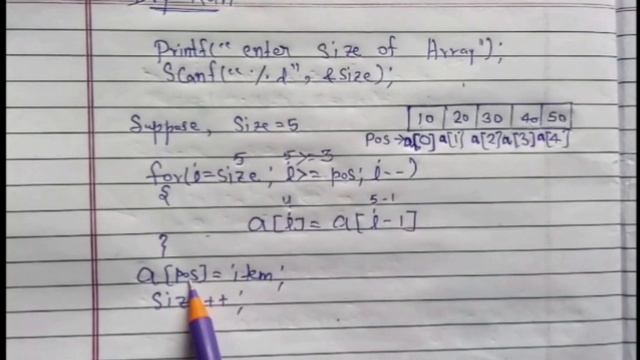 Printf("enter size of Array");
Scanf("%d", &size);
Suppose, Size=5
10 20 30 40 50
Pos→a[0] a[1] a[2] a[3] a[4]
5 5>=3
for(i=size; i>=pos; i--)
{
4 5-1
a[i]=a[i-1]
}
a[pos]=item;
Size++;